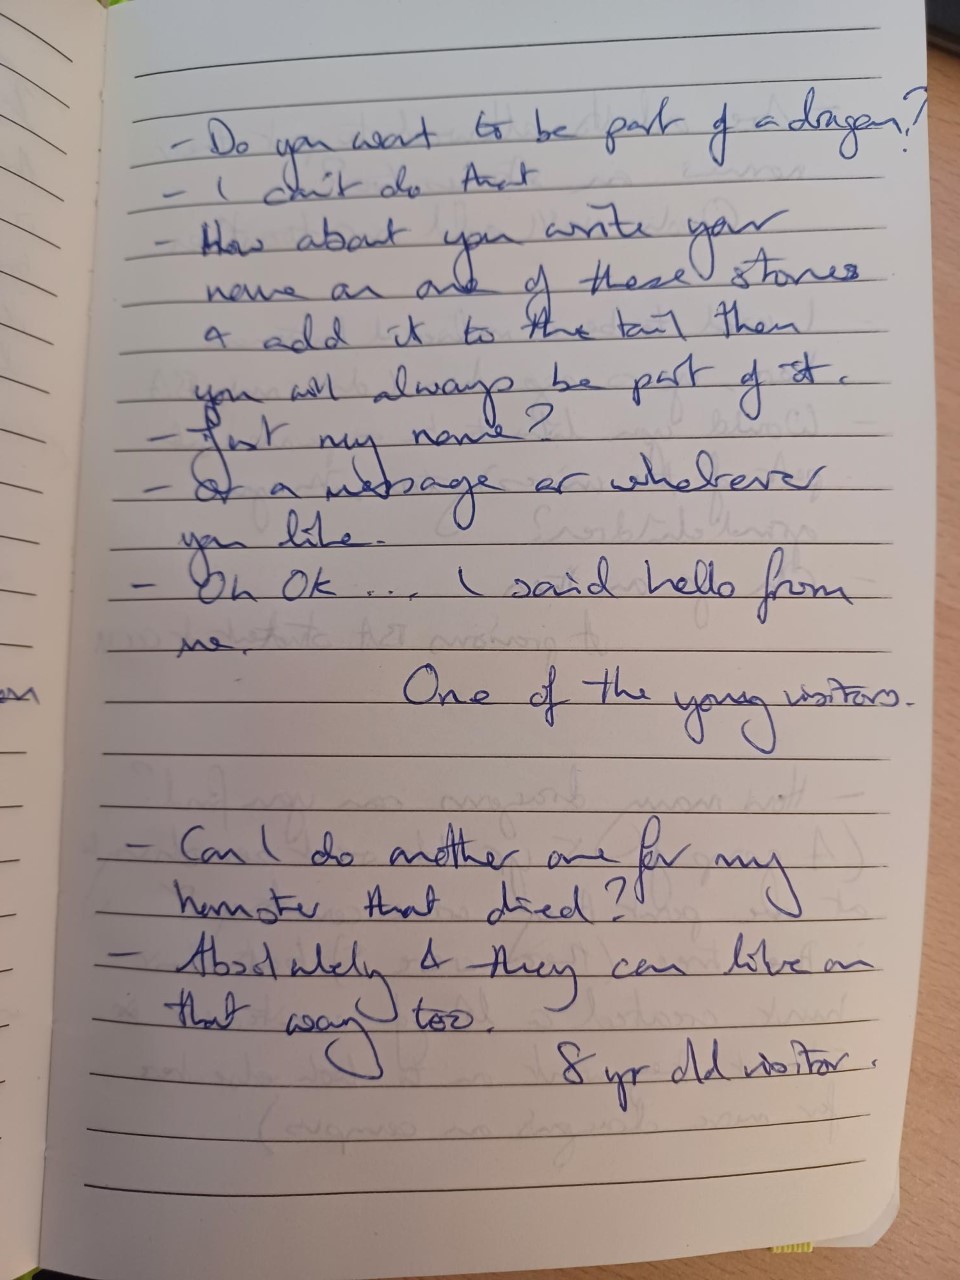 - Do you want to be part of a dragon?
- I can't do that
- How about you write your
name on one of these stones
& add it to the tail then
you will always be part of it.
- Just my name?
- Or a message or whatever
you like.
- Oh OK ... I said hello from
me.
One of the young visitors.
- Can I do another one for my
hamster that died?
- Absolutely & they can live on
that way too.
8 yr old visitor.